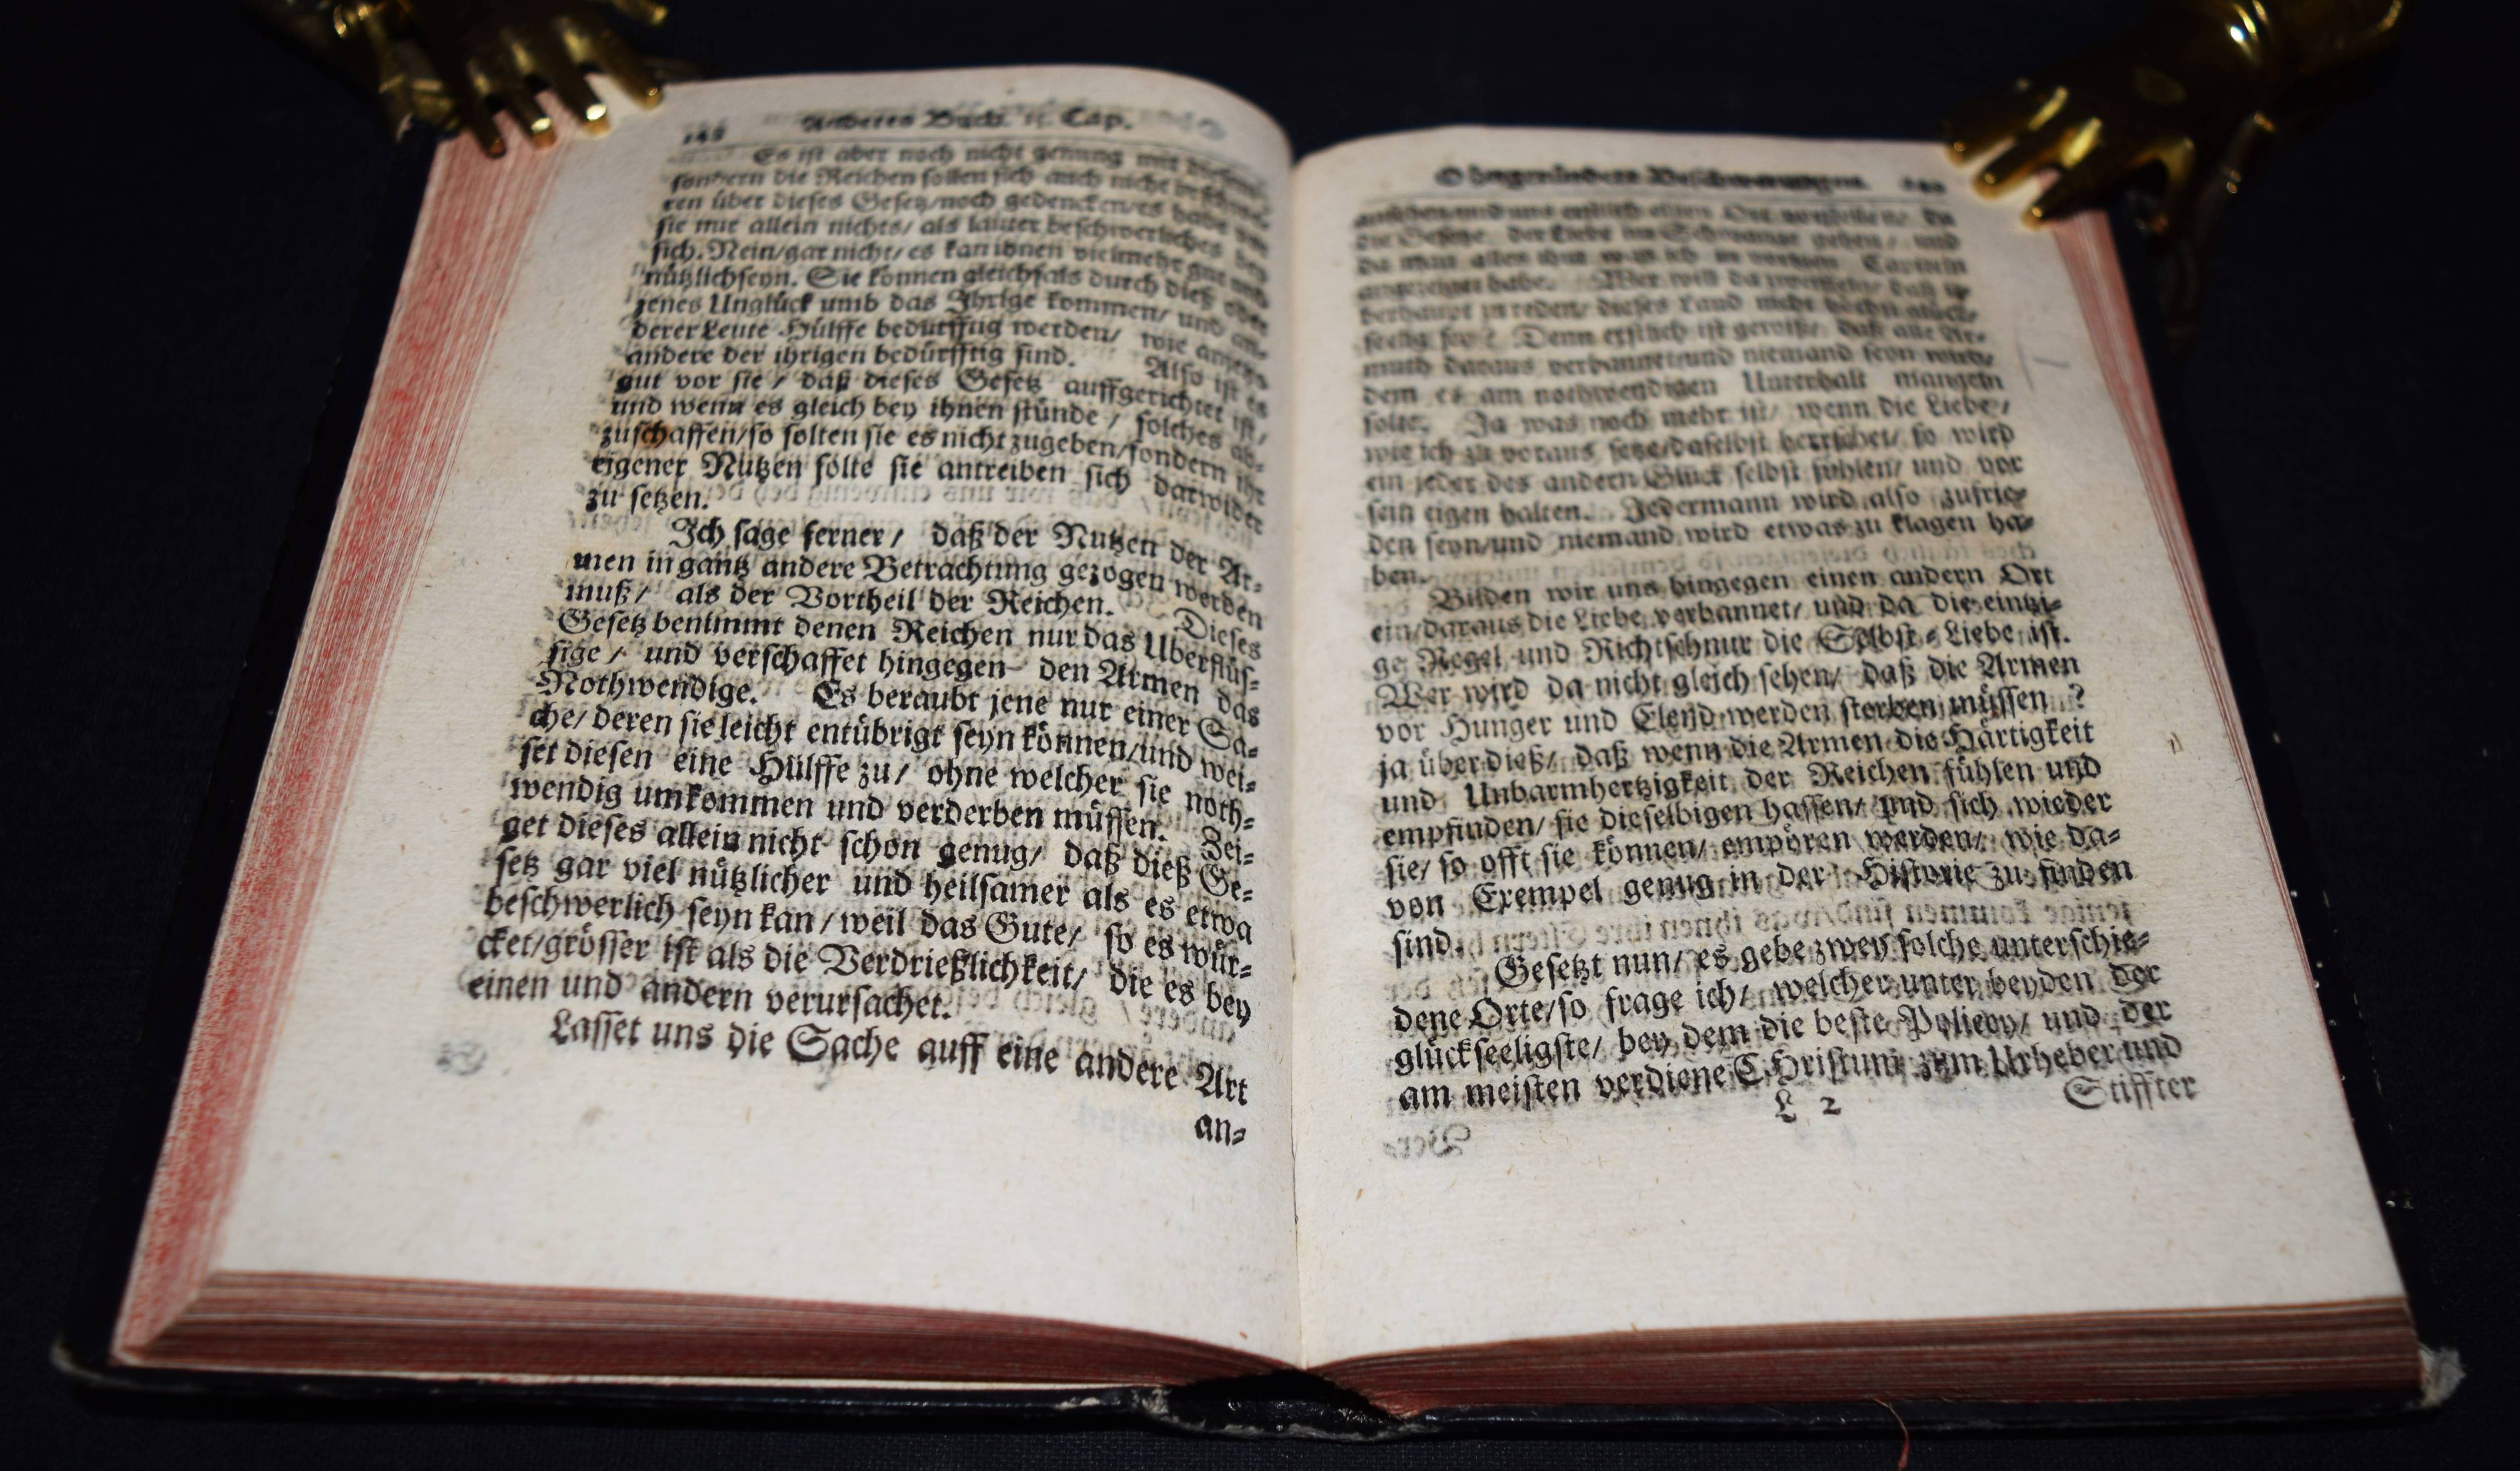 Anderes Buch. 11. Cap.
Es ist aber noch nicht genung mit diesem/
sondern die Reichen sollen sich auch nicht beschwe-
ren über dieses Gesetz/noch gedencken/es habe vor
sie nur allein nichts/ als lauter beschwerliches bey
sich. Nein/gar nicht/ es kan ihnen vielmehr gut und
nützlich seyn. Sie können gleichfals durch dieß oder
jenes Unglück umb das Ihrige kommen/ und an-
derer Leute Hülffe bedürfftig werden/ wie anjetzo
andere der ihrigen bedürfftig sind. Also ist es
gut vor sie / daß dieses Gesetz auffgerichtet ist/
und wenn es gleich bey ihnen stünde / solches ab-
zuschaffen/so solten sie es nicht zugeben/sondern ihr
eigener Nutzen solte sie antreiben sich darwider
zu setzen.
Ich sage ferner / daß der Nutzen der Ar-
men in gäntz andere Betrachtung gezogen werden
muß / als der Vortheil der Reichen. Dieses
Gesetz benimmt denen Reichen nur das Uberflüs-
sige / und verschaffet hingegen den Armen das
Nothwendige. Es beraubt jene nur einer Sa-
che/ deren sie leicht entübrigt seyn können/und wei-
set diesen eine Hülffe zu / ohne welcher sie noth-
wendig umkommen und verderben müssen. Zei-
get dieses allein nicht schon genug/ daß dieß Ge-
setz gar viel nützlicher und heilsamer als es etwa
beschwerlich seyn kan / weil das Gute/ so es wür-
cket/grösser ist als die Verdrießlichkeit/ die es bey
einen und andern verursachet.
Lasset uns die Sache auff eine andere Art
an-
die Gesetze der Liebe im Schwange gehen / und
da man alles thut was ich in vorigen Capiteln
angezeiget habe. Wer will da zweifeln/ daß ü-
berhaupt zu reden/ dieses Land nicht höchst glück-
seelig sey? Denn erstlich ist gewiß/ daß alle Ar-
muth daraus verbannet/und niemand seyn wird/
dem es am nothwendigen Unterhalt mangeln
solte. Ja was noch mehr ist/ wenn die Liebe/
wie ich zu voraus setze/daselbst herrschet/ so wird
ein jeder des andern Glück selbst fühlen/ und vor
sein eigen halten. Jedermann wird also zufrie-
den seyn/und niemand wird etwas zu klagen ha-
ben.
Bilden wir uns hingegen einen andern Ort
ein/daraus die Liebe verbannet/ und da die eintzi-
ge Regel und Richtschnur die Selbst-Liebe ist.
Wer wird da nicht gleich sehen/ daß die Armen
vor Hunger und Elend werden sterben müssen ?
ja über dieß/ daß wenn die Armen die Härtigkeit
und Unbarmhertzigkeit der Reichen fühlen und
empfinden/ sie dieselbigen hassen/ und sich wieder
sie/ so offt sie können/ empören werden/ wie da-
von Exempel genug in der Historie zu finden
sind.
Gesetzt nun/ es gebe zwey solche unterschie-
dene Orte/so frage ich/ welcher unter beyden der
glückseeligste/ bey dem die beste Policey/ und der
am meisten verdiene CHristum zum Urheber und
L 2 Stiffter